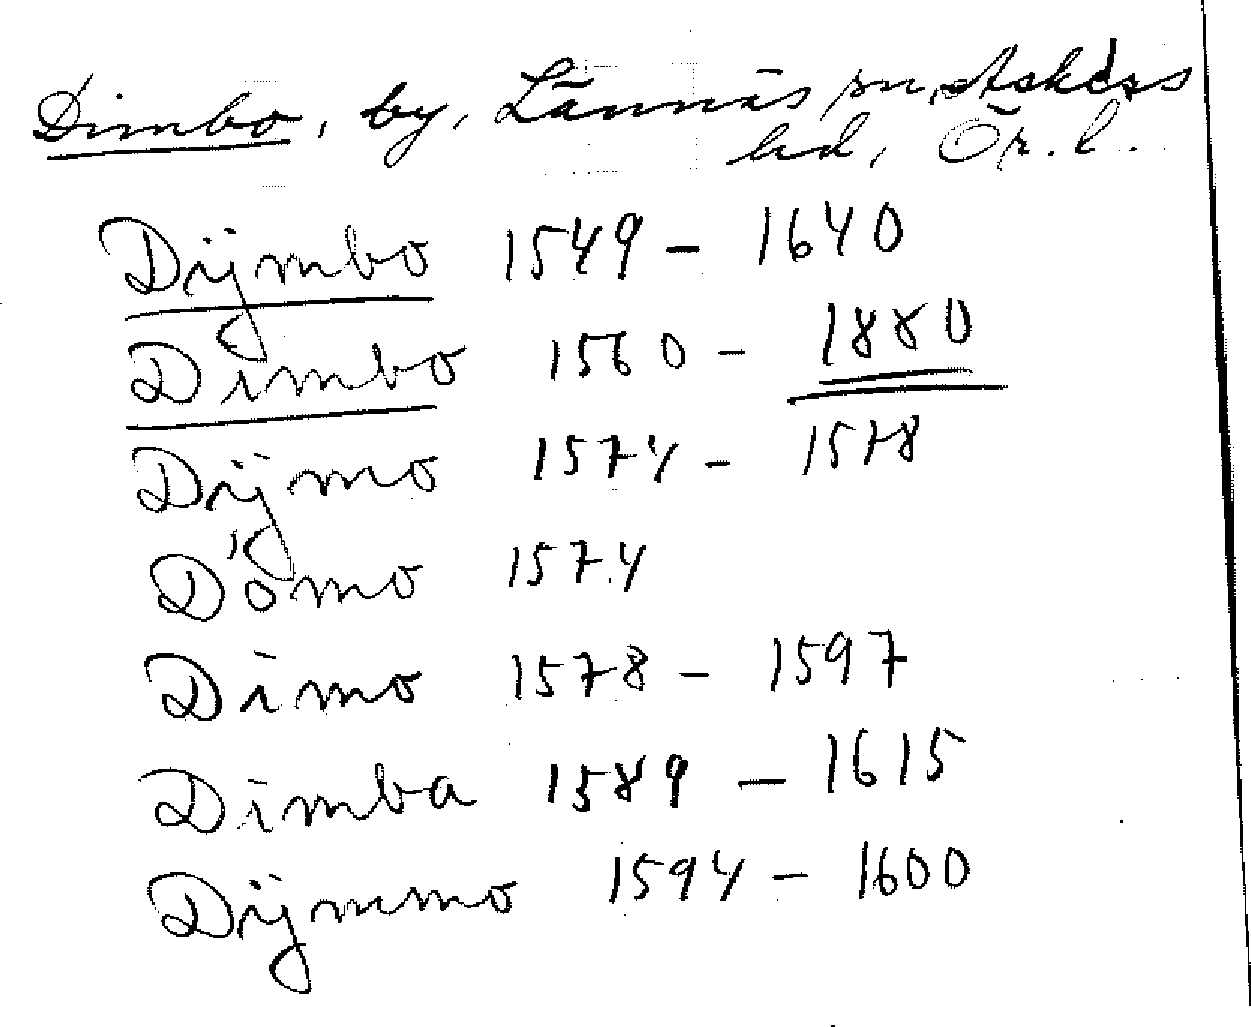 Dimbo, by, Lännäs sn, Askers
hd, Ör. l.
Dijmbo 1549 - 1640
Dimbo 1560 - 1880
Dijmo 1574 - 1578
Dömo 1574
Dimo 1578 - 1597
Dimba 1589 - 1615
Dijmmo 1594 - 1600